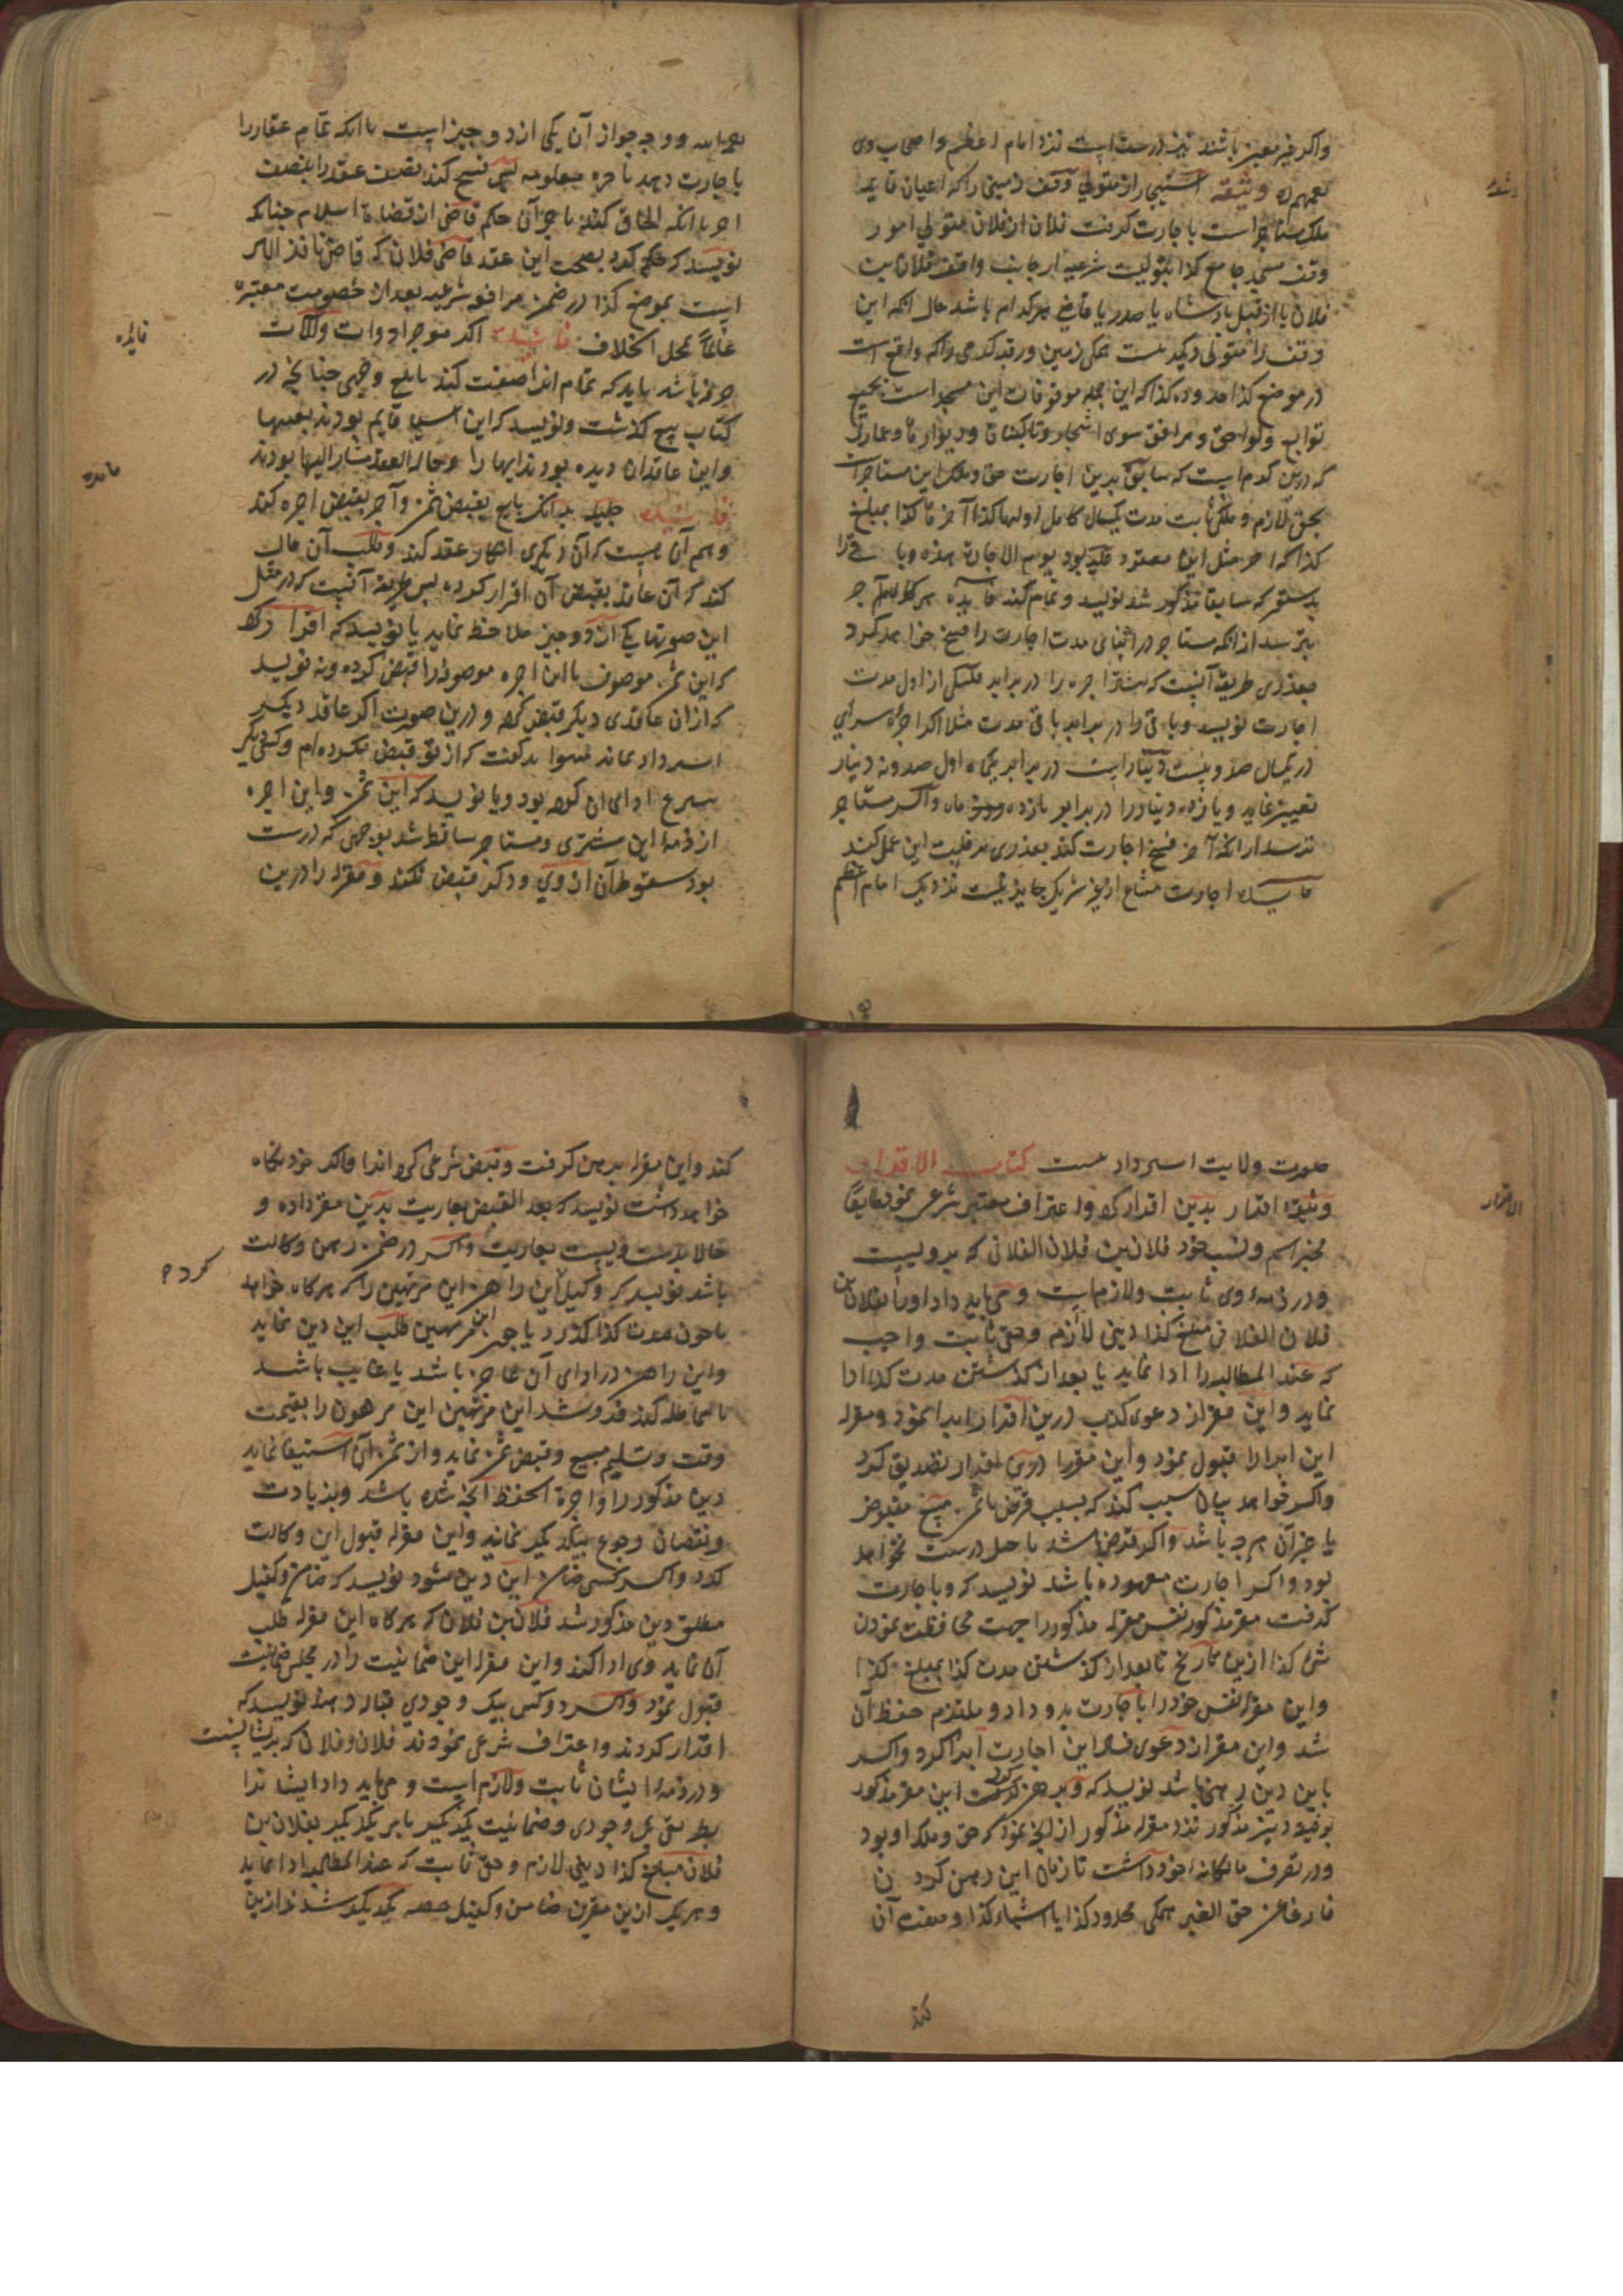 واکر غیر معین باشد نیز درست است نزد امام اعظم و اصحاب وی
وثیقه استیجار از متولی وقف زمینی را که اعیان قایمه
ملک مستاجر است باجارت کرفت فلان از فلان متولی امور
وقف مسجد جامع کذا بتولیت شرعیه از جانب واقف فلان بن
فلان یا از قبل بادشاه یا صدر یا قاضی هر کدام باشد حال انکه این
وقف را متولی دیکر نیست همکی زمین ورقبه کرمی را که واقع است
در موضع کذا حدوده کذا که این جمله موقوفات این مسجد است بجمیع
توابع ولواحق و مرافق سوی اشجار وتاکستان ودیوارها وعمارتی
که درین کرم است که سابق بدین اجارت حق وملک این مستاجر است
بحق لازم وملکی ثابت مدت یکسال کامل اولها کذا آخرها کذا بمبلغ
کذا که اجر مثل این معقود علیه بود یوم الاجارة هذه وبا
بدستور که سابقا مذکور شد نویسد و تمام کند فایده هر کاه آجر
بترسد از انکه مستاجر در اثنای مدت اجارت را فسخ خواهد کرد
بعذری طریقه آنست که بیشتر اجره را در برابر اندکی از اول مدت
اجارت نویسد وباقی را در برابر باقی مدت مثلا اکر اجره سرای
در یکسال صد وبیست دینار است در برابر یکماه اول صد ونه دینار
تعیین نماید ویازده دینار را در برابر یازده ماه واکر مستاجر
ترسد از انکه آجر فسخ اجارت کند بعذری بر قلب این عمل کند
فایده اجارت مشاع از غیر شریک جایز نیست نزدیک امام اعظم
رحمه الله و وجه جواز آن یکی از دو چیز است یا انکه تمام عقار را
باجارت دهد باجره معلومه پس فسخ کند نصف عقد را بنصف
اجر یا انکه الحاق کند باخر آن حکم قاضی از قضاة اسلام چنانکه
نویسد که حکم کرد بصحت این عقد قاضی فلان که قاضی نافذ الامر
است بموضع کذا در ضمن مرافعه شرعیه بعد از خصومت معتبره
عالما بمحل الخلاف فایده اکر موجر ادوات وآلات
حرفه باشد باید که تمام انرا صفت کند بابلغ وجهی چنانچه در
کتاب بیع کذشت ونویسد که این اشیا قایم بودند بعینها
واین عاقدان دیده بودند اینها را وحاله العقد مشار الیها بودند
فایده جلیله بدانکه بایع بقبض ثمن وآجر بقبض اجره کند
وهم آن هست که آن دیکری انکار عقد کند وطلب آن مال
کند که آن عاقد بقبض آن اقرار کرده پس طریقه آنست که در مثل
این صورتها یکی از دو چیز ملاحظه نماید یا نویسد که اقرار کرد
که این ثمن موصوف یا این اجره موصوفه را قبض کرده ونه نویسد
که از آن عاقدی دیکر قبض کرد ودرین صورت اکر عاقد دیکر
استرداد نماید میتواند کفت که از تو قبض نکرده‌ام وکسی دیکر
بتبرع ادای آن کرده بود ویا نویسد که این ثمن واین اجره
از ذمه این مشتری ومستاجر ساقط شد بوجهی که درست
بود سقوط آن از وی وذکر قبض نکند ومقر له را درین
فایده
فایده
صورت ولایت استرداد نیست کتاب الاقرار
وثیقه اقرار بدین اقرار کرد واعتراف معتبر شرعی نمود طایعا
مخبر اسم ونسب خود فلان بن فلان الفلانی که بر ویست
ودر ذمه وی ثابت ولازم است و می‌باید داد او را بفلان بن
فلان الفلانی مبلغ کذا دینی لازم وحقی ثابت واجب
که عند المطالبه را ادا نماید یا بعد از کذشتن مدت کذا ادا
نماید واین مقر از دعوی کذب درین اقرار ابرا نمود ومقر له
این ابرا را قبول نمود واین مقر را درین اقرار تصدیق کرد
واکر خواهد بیان سبب کند که بسبب قرض یا ثمن مبیع مقبوض
یا جز آن هر چه باشد واکر قرض باشد با اجل درست نخواهد
بود واکر اجارت معهوده باشد نویسد که وباجارت
کرفت مقر مذکور نفس مقر له مذکور را جهت محافظت نمودن
شی کذا ازین تاریخ تا بعد از کذشتن مدت کذا بمبلغ کذا
واین مقر له نفس خود را باجارت بدو داد وملتزم حفظ آن
شد واین مقر از دعوی فساد این اجارت ابرا کرد واکر
باین دین رهنی باشد نویسد که وبرهن کرد این مقر مذکور
بوفیه دین مذکور نزد مقر له مذکور از انچه نمود که حق وملک او بود
ودر تصرف مالکانه خود داشت تا زمان این رهن کردن
فارغا عن حق الغیر همکی محدود کذا یا اشیاء کذا وصفت آن
الاقرار
کند
کند واین مقر له برهن کرفت وقبض شرعی کرد انرا واکر خود نکاه
خواهد داشت نویسد که بعد القبض بعاریت بدین مقر داده و
حالا بدست ویست بعاریت واکر در ضمن رهن وکالت
باشد نویسد که وکیل این راهن این مرتهن را که هر کاه خواهد
یا چون مدت کذا کذرد یا چون این مرتهن طلب این دین نماید
واین راهن در ادای آن عاجز باشد یا غایب باشد
یا مماطله کند فروشد این مرتهن این مرهون را بقیمت
وقت وتسلیم مبیع وقبض ثمن نماید واز ثمن آن استیفا نماید
دین مذکور را واجرة الحفظ انچه شده باشد وبزیادت
ونقصان رجوع بیکدیکر نمایند واین مقر له قبول این وکالت
کرد واکر کسی ضامن این دین میشود نویسد که ضامن وکفیل
مطلق دین مذکور شد فلان بن فلان که هر کاه این مقر له طلب
آن نماید وی ادا کند واین مقر له این ضمانیت را در مجلس ضمانیت
قبول نمود واکر دو کس بیک وجودی قباله دهند نویسد که
اقرار کردند واعتراف شرعی نمودند فلان وفلان که بریشانست
ودر ذمه ایشان ثابت ولازم است و می‌باید داد ایشانرا
بطریق یک وجودی وضمانیت یکدیکر بامر یکدیکر بفلان بن
فلان مبلغ کذا دینی لازم وحق ثابت که عند المطالبه ادا نمایند
وهر یک ازین مقرین ضامن وکفیل حصه یکدیکر شدند ازین
کردم